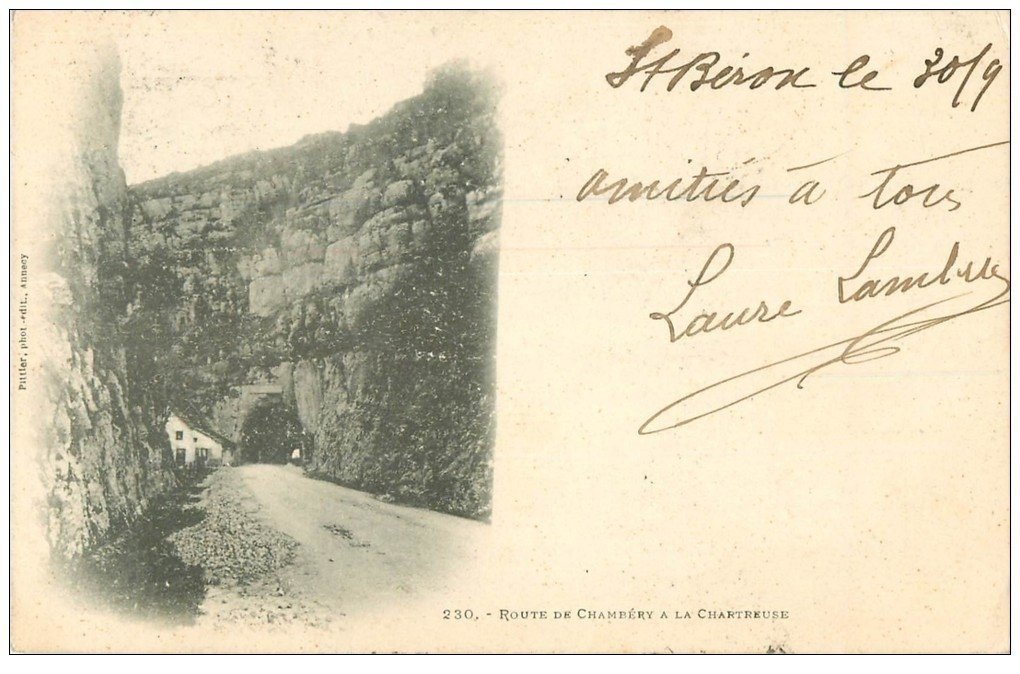 St Béron le 30/9
amitiés à tous
Laure Lambur
Pittier, phot.-édit., Annecy
230. - ROUTE DE CHAMBÉRY A LA CHARTREUSE